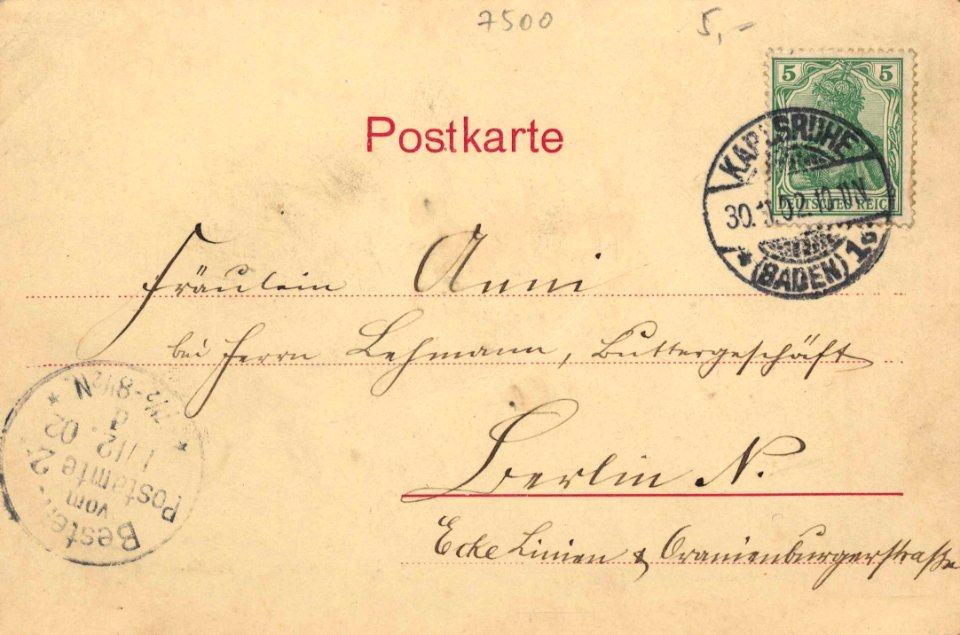 7500 5,-
Postkarte
5 5
DEUTSCHES REICH
KARLSRUHE
30.11.02.10-11N.
* (BADEN) 1
Fräulein Anni
bei Herrn Lehmann, Buttergeschäft
Berlin N.
Ecke Linien & Oranienburgerstraße
Bestellt
vom
Postamte 2
1/12. 02
7½-8½ N.